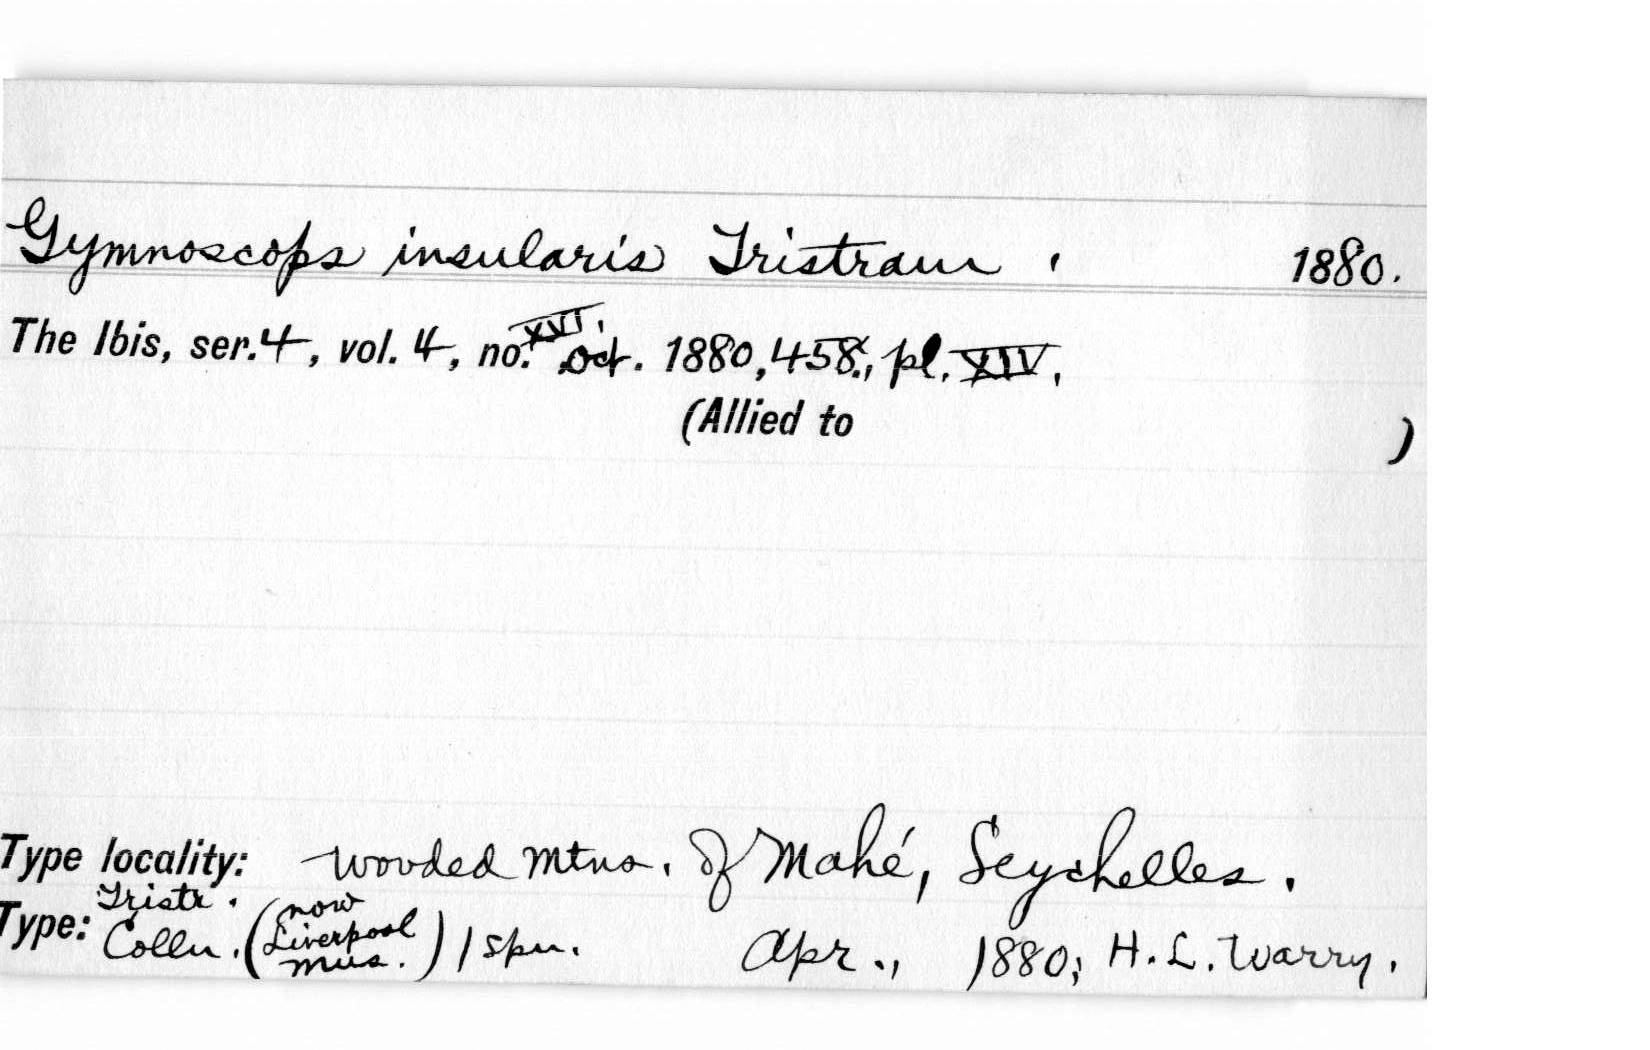 Gymnoscops insularis Tristram. 1880.
The Ibis, ser. 4, vol. 4, no. XVI. Oct. 1880, 458., pl. XIV.
(Allied to )
Type locality: wooded mtns. of Mahé, Seychelles.
Type: Tristr. Colln. (now Liverpool Mus.) 1 spn. Apr., 1880; H. L. Warry.